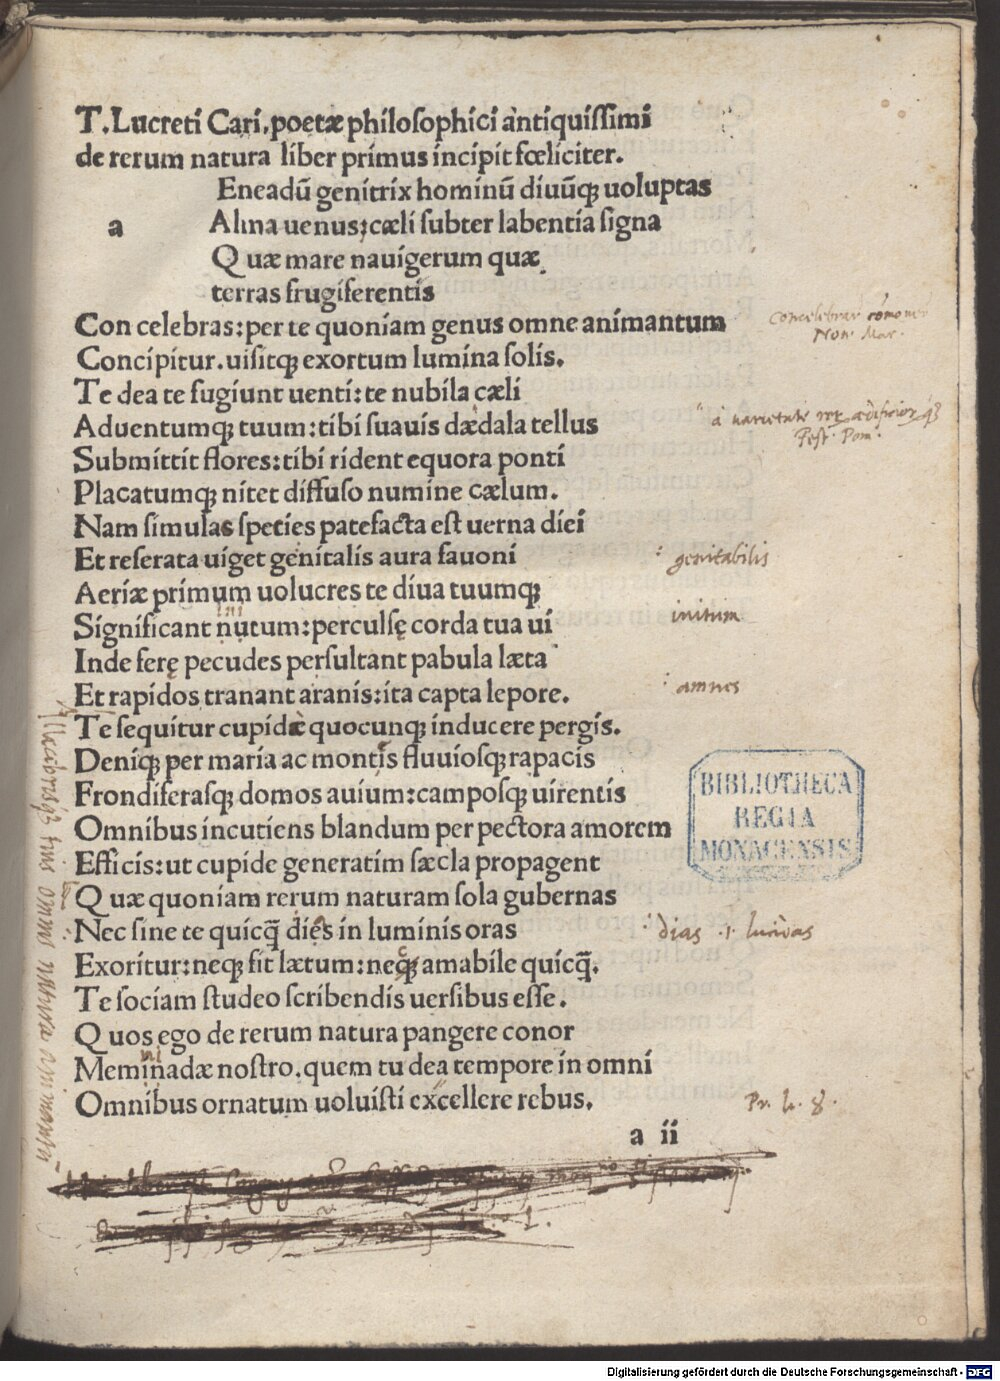 T.Lucreti Cari.poetæ philosophici antiquissimi
de rerum natura liber primus incipit fœliciter.
Eneadũ genitrix hominũ diuũqꝫ uoluptas
a
Alma uenus:cæli subter labentia signa
Quæ mare nauigerum quæ
terras frugiferentis
Con celebras:per te quoniam genus omne animantum
Concipitur.uisitqꝫ exortum lumina solis.
Te dea te fugiunt uenti:te nubila cæli
Aduentumqꝫ tuum:tibi suauis dædala tellus
Submittit flores:tibi rident equora ponti
Placatumqꝫ nitet diffuso numine cælum.
Nam simulas speties patefacta est uerna diei
Et reserata uiget genitalis aura fauoni
genitabilis
Aeriæ primum uolucres te diua tuumqꝫ
ini
Significant nutum:perculsę corda tua ui
initum
Inde ferę pecudes persultant pabula læta
Et rapidos tranant aranis:ita capta lepore.
amnes
Te sequitur cupidæ quocunqꝫ inducere pergis.
Deniqꝫ per maria ac montis fluuiosqꝫ rapacis
Frondiferasqꝫ domos auium:camposqꝫ uirentis
Omnibus incutiens blandum per pectora amorem
Efficis:ut cupide generatim sæcla propagent
Quæ quoniam rerum naturam sola gubernas
Nec sine te quicq̃ dies in luminis oras
dias
Exoritur:neqꝫ fit lætum:neqꝫ amabile quicq̃.
Te sociam studeo scribendis uersibus esse.
Quos ego de rerum natura pangere conor
ni
Meminadæ nostro.quem tu dea tempore in omni
Omnibus ornatum uoluisti excellere rebus.
a ii
BIBLIOTHECA
REGIA
MONACENSIS
Digitalisierung gefördert durch die Deutsche Forschungsgemeinschaft - DFG